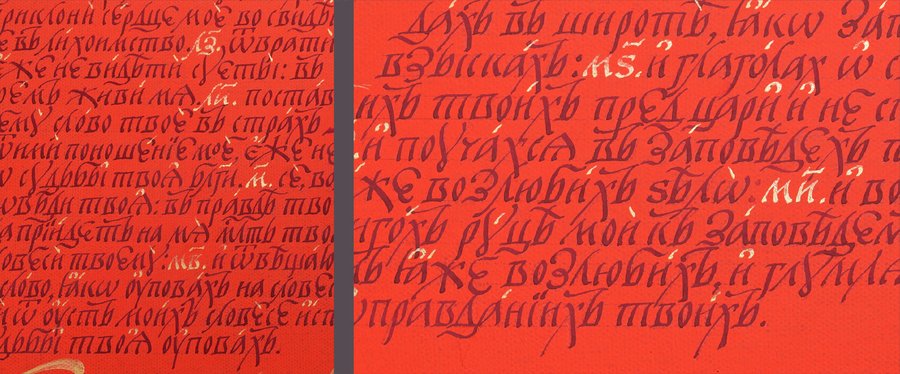 приклони сердце мое во свидѣ
е въ лихоимство. л҃з. ѿврати
еже не видѣти суеты: въ
оемъ живи мѧ. л҃и. постав
ему слово твое въ страхъ.
ѿими поношенїе мое, еже не
судьбы твоѧ бл҃ги. м҃. се, во
вѣди твоѧ: въ правдѣ тво
а прїидетъ на мѧ мл҃ть тво
овеси твоему: м҃в. и ѿвѣщаю
слово, ꙗкѡ ѹповахъ на словес
и ѿ ѹстъ моихъ словесе ист
дьбы твоѧ ѹповахъ.
дахъ въ широтѣ, ꙗкѡ зап
взыскахъ: м҃ѕ. и глаголах ѡ с
ихъ твоихъ пред цари и не с
и поучахсѧ въ заповѣдехъ т
же возлюбихъ ѕѣлѡ: м҃и. и во
игохъ руцѣ мои къ заповѣдем
ъ ꙗже возлюбихъ, и глумлѧ
оправданїихъ твоихъ.